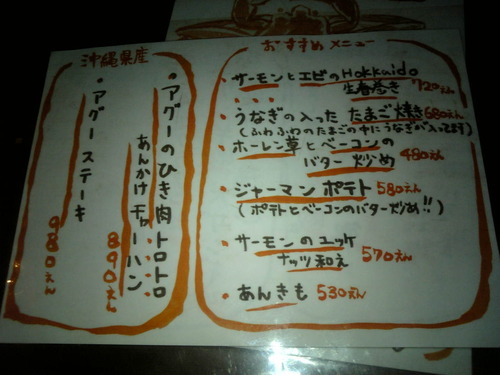 おすすめメニュー
・サーモンとエビのHokkaido
生春巻き 720えん
・うなぎの入った たまご焼き 680えん
(ふわふわのたまごの中にうなぎが入ってます)
・ホーレン草とベーコンの
バター炒め 480えん
・ジャーマンポテト 580えん
(ポテトとベーコンのバター炒め!!)
・サーモンのユッケ
ナッツ和え 570えん
・あんきも 530えん
沖縄県産
・アグーのひき肉トロトロ
あんかけチャーハン
890えん
・アグーステーキ
980えん